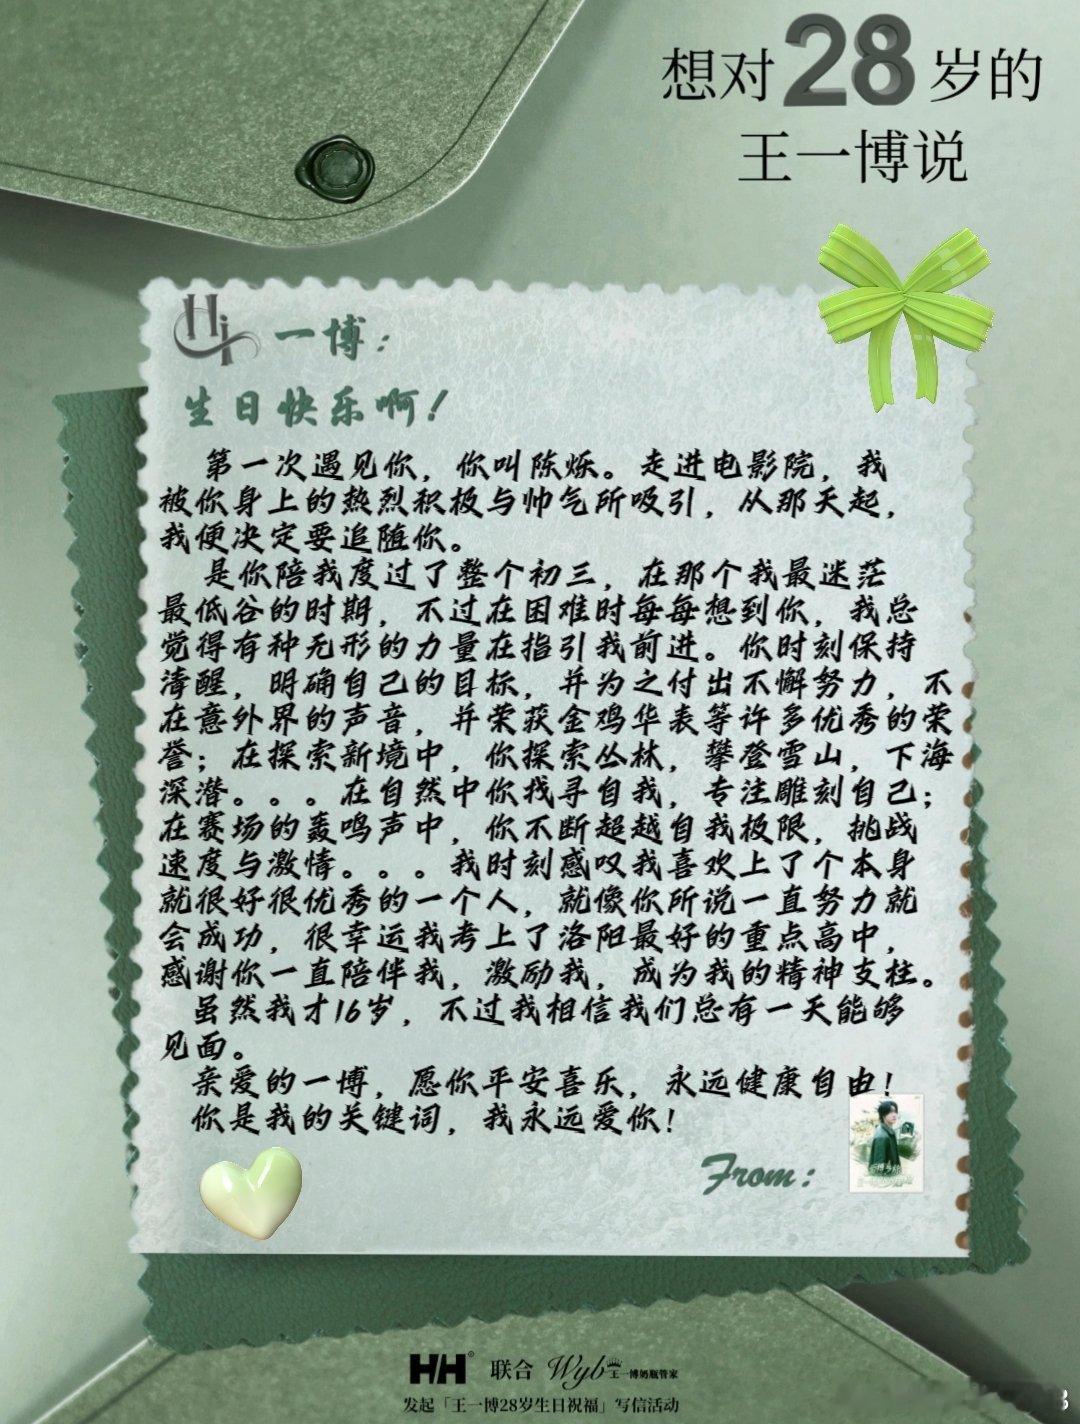 想对28岁的
王一博说
Hi 一博：
生日快乐啊！
第一次遇见你，你叫陈烁。走进电影院，我
被你身上的热烈积极与帅气所吸引，从那天起，
我便决定要追随你。
是你陪我度过了整个初三，在那个我最迷茫
最低谷的时期，不过在困难时每每想到你，我总
觉得有种无形的力量在指引我前进。你时刻保持
清醒，明确自己的目标，并为之付出不懈努力，不
在意外界的声音，并荣获金鸡华表等许多优秀的荣
誉；在探索新境中，你探索丛林，攀登雪山，下海
深潜。。。在自然中你找寻自我，专注雕刻自己；
在赛场的轰鸣声中，你不断超越自我极限，挑战
速度与激情。。。我时刻感叹我喜欢上了个本身
就很好很优秀的一个人，就像你所说一直努力就
会成功，很幸运我考上了洛阳最好的重点高中，
感谢你一直陪伴我，激励我，成为我的精神支柱。
虽然我才16岁，不过我相信我们总有一天能够
见面。
亲爱的一博，愿你平安喜乐，永远健康自由！
你是我的关键词，我永远爱你！
From：
HH® 联合 Wyb王一博奶瓶管家
发起「王一博28岁生日祝福」写信活动